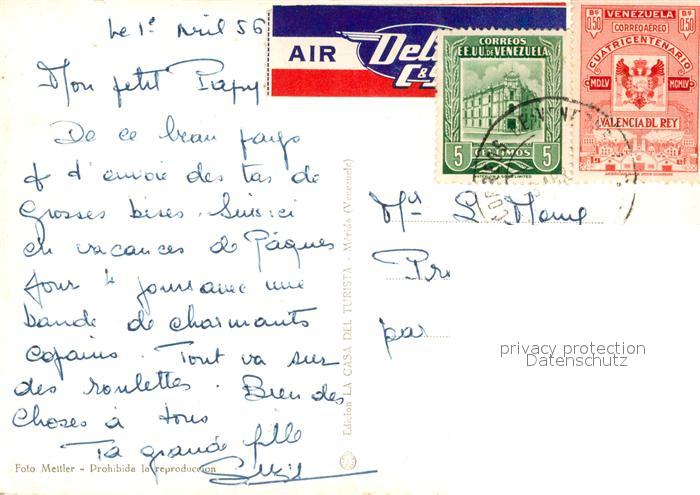 Le 1er Avril 56
Mon petit Papy
De ce beau pays
je t'envoie des tas de
grosses bises. Suis ici
en vacances de Pâques
pour 4 jours avec une
bande de charmants
copains. Tout va sur
des roulettes. Bien des
choses à tous
Ta grande fille
AIR
C&S
CORREOS
EE.UU. DE VENEZUELA
5 CENTIMOS 5
Bs 0,50 VENEZUELA Bs 0,50
CORREO AEREO
CUATRICENTENARIO
MDLV MCMLV
VALENCIA DEL REY
par
privacy protection
Datenschutz
Edicion LA CASA DEL TURISTA - Mérida (Venezuela)
Foto Mettler - Prohibida la reproduccion